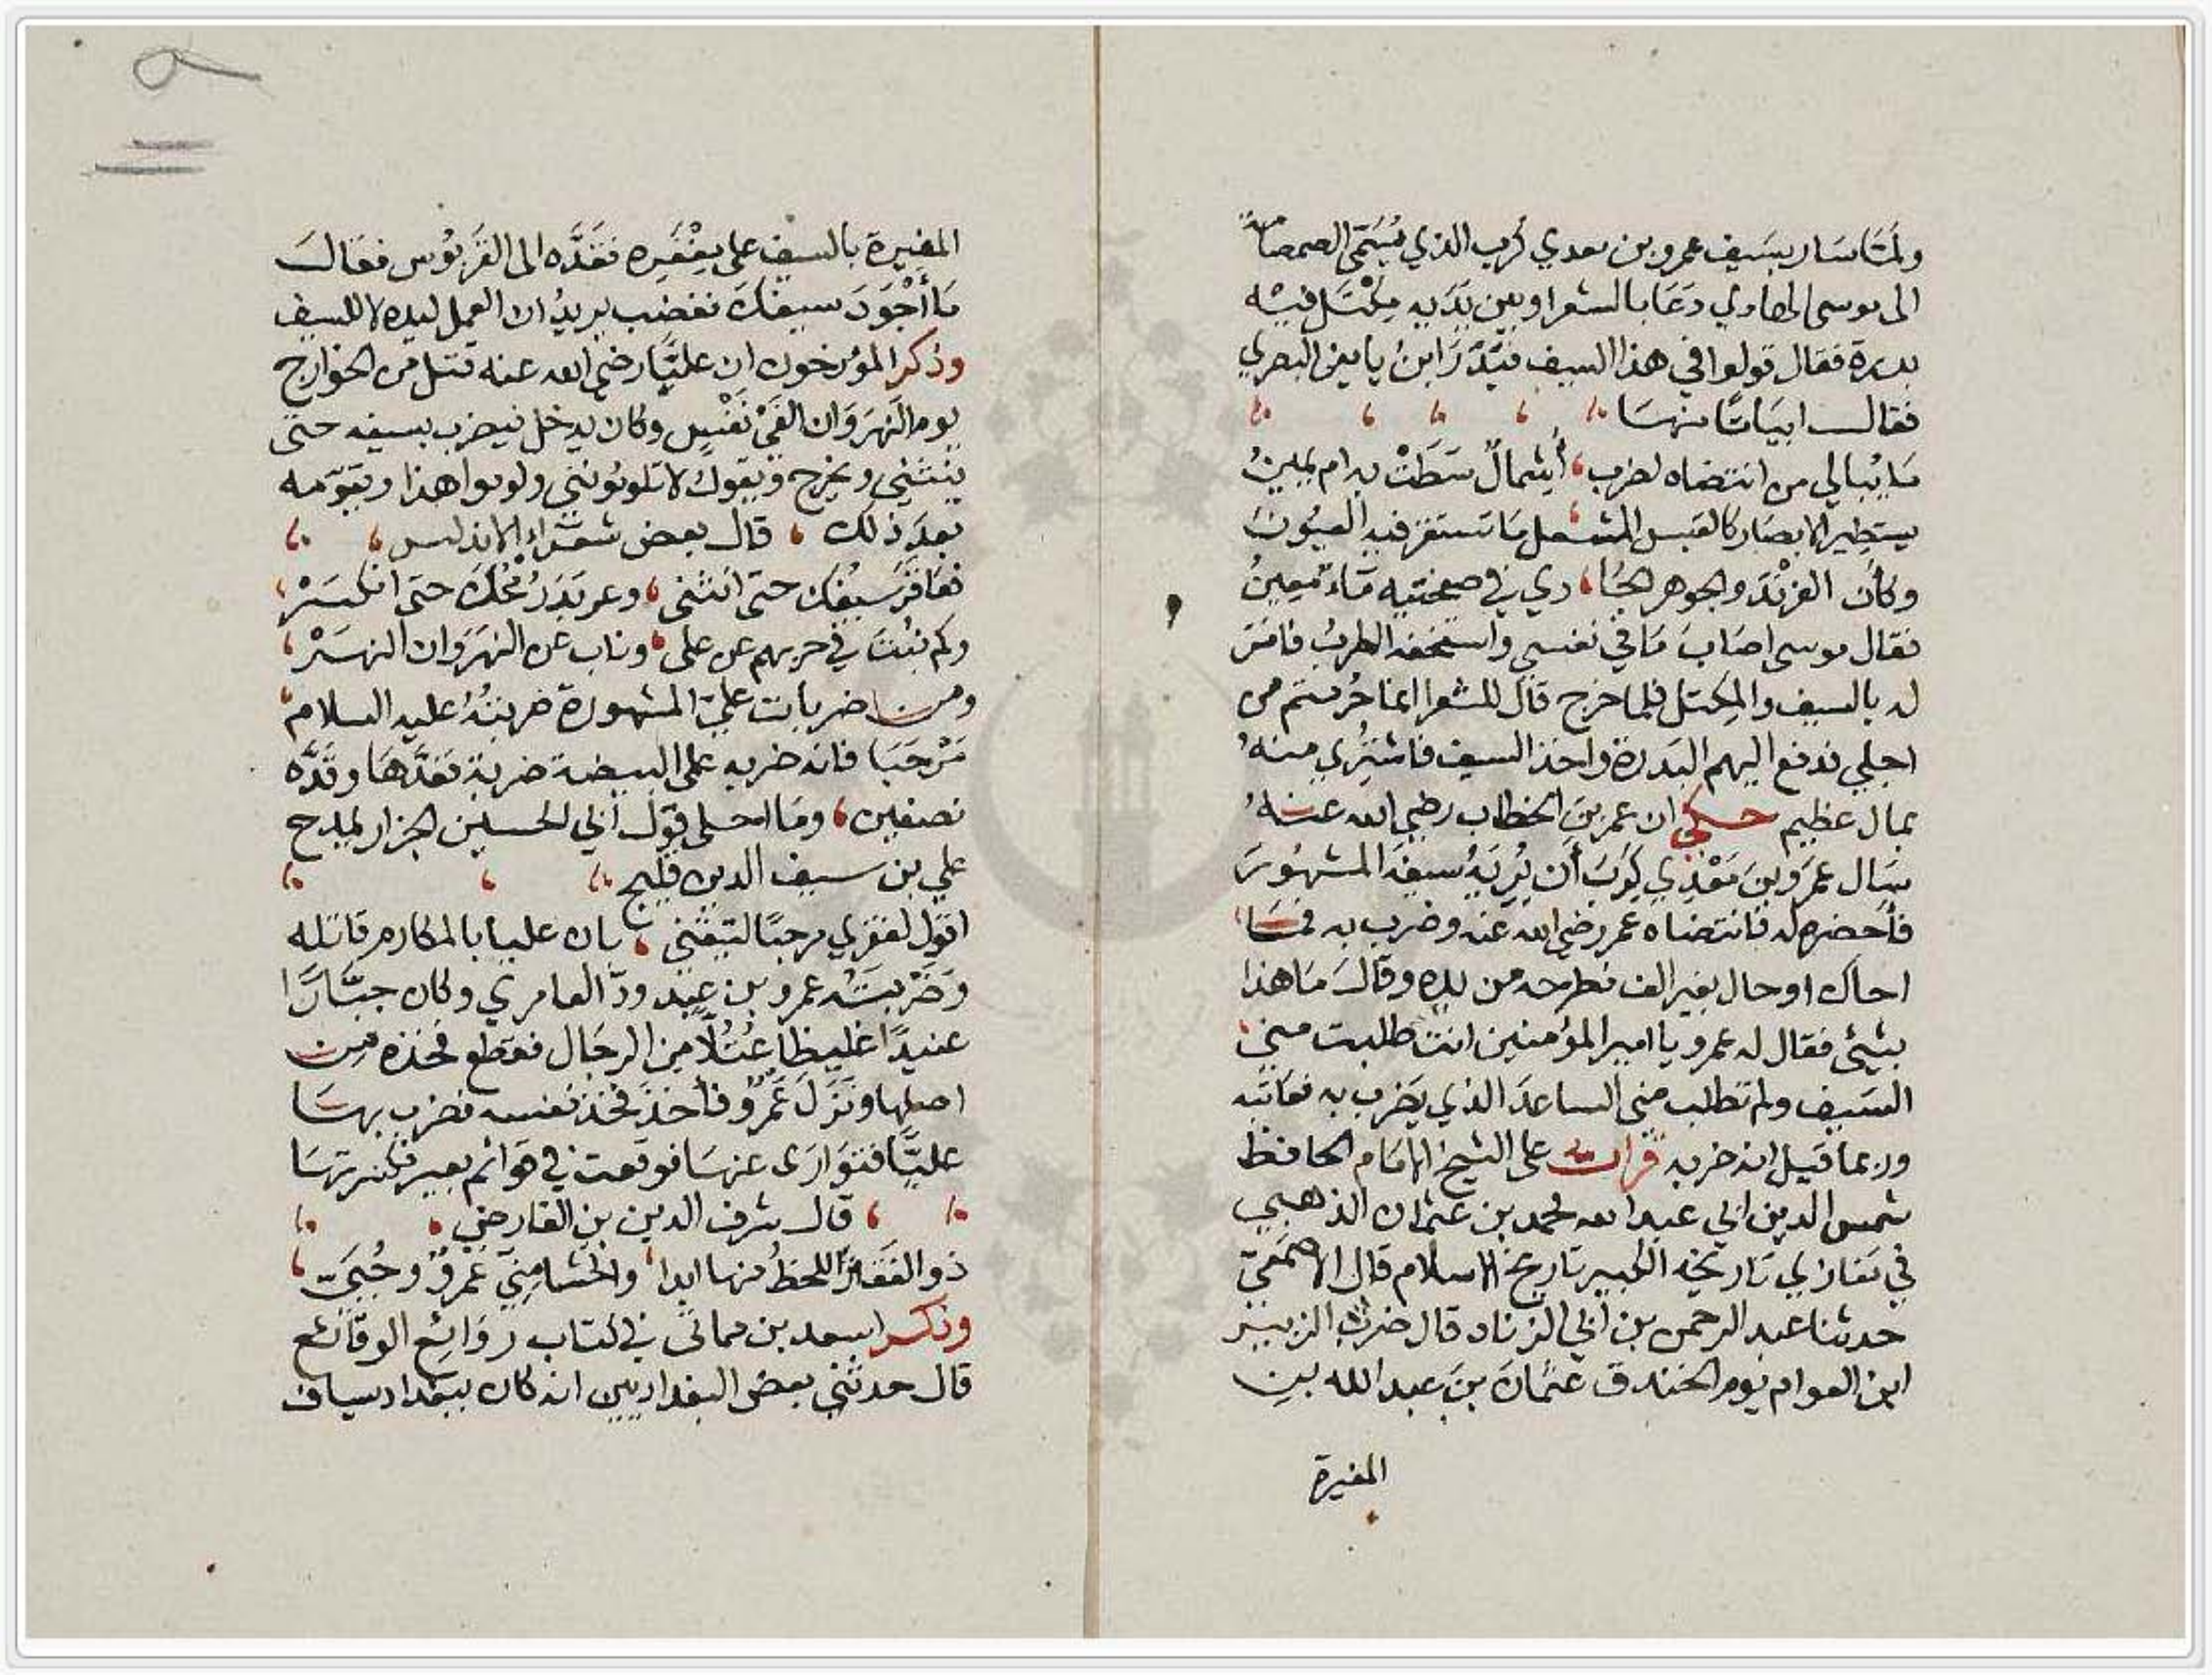 ولمّا سار بسَيف عمرو بن معدي كرب الذي يُسَمّى الصمصامة
الى موسى الهادي دَعَا بالشعرا وبين يَدَيه مِكْتَل فيه
بدرة فقال قولوا في هذا السيف فبَدَرَ ابنُ يامين البصري
فقال ابيَاتًا منها
مَا يُبالي من انتضاه لضرب، أشِمالٌ سَطَتْ به ام يمينُ
يستطير الابصَار كالقبس المشعل مَا تستقر فيه العيُونُ
وكأن الفِرْنْدَ والجوهر الجَا، ري في صفحتيه مَاءٌ مَعِينُ
فقال موسى اصَابَ مَا في نفسي واستخفه الطربُ فامَرَ
له بالسيف والمِكتل فلما خرج قال للشعرا انما حُرمتم من
اجلي فدفع اليهم البَدرة واخذ السيف فاشتُري منهُ
بمال عظيم حكي ان عمر بن الخطاب رضي الله عنهُ
سَال عمرَو بنَ مَعْدِي كَرِبَ أن يُرِيَهُ سيفَه المشهُورَ
فأحضره له فانتضاه عمر رضي الله عنه وضرب به فمَا
احاك او حال بغير الف فطرحه من يده وقالَ مَا هذا
بشئ فقال له عمرو يا امير المؤمنين انتَ طلبت مني
السَيف ولم تطلب مني الساعدَ الذي يَضرب به فعاتَبه
وربما قيل انه ضربه قرأت على الشيخ الامَام الحافظ
شمس الدين ابي عبد الله محمد بن عثمان الذهبي
في مَغازي تاريخه الكبير تاريخ الاسلام قال الاصمَعِيّ
حدثنا عبد الرحمن بن ابي الزناد قال ضربَ الزبير
ابن العوام يوم الخندق عثمانَ بنَ عبد الله بن
المغيرة
المغيرة بالسيف على مِغْفَرِه فقَدَّه الى القَرَبُوس فقالَ
مَا أجْوَدَ سيفكَ فغضب يريدُ ان العمل ليده لا للسيف
وذكر المؤرخون ان عليًّا رضي الله عنه قتل من الخوارج
يوم النَهرَوَان الفَيْ نَفْسٍ وكان يدخل فيضرب بسيفه حتى
يَنْثَني ويخرج ويقولُ لا تلومُونني ولوموا هذا ويقوّمه
بعدَ ذلك، قال بعض شعَراء الاندلس
فعَاقرَ سَيفُكَ حتى انثنى، وعربَدَ رُمْحُكَ حتى انكسَرْ،
وكم نُبْتَ في حربهم عن علي، وناب عن النهرَوان النهَرْ،
ومن ضربات عليّ المشهورة ضربتُهُ عليه السلام
مَرْحَبَا فانه ضربه على البيضة ضربة فقَدَّهَا وقَدَّه
نصفين، ومَا احلى قول ابي الحسين الجزار يمدح
علي بن سيف الدين قليج
اقول لفقري مرحبًا لتيقني، بان عليا بالمكارم قاتله
وَضَرْبَتُه عمرو بن عبد ودّ العامري وكان جبّارًا
عنيدًا غليظا عُتُلًّا من الرجال فقطع فخذه من
اصلها ونَزَلَ عَمْرٌو فأخذ فخذ نفسه فضرب بهَا
عليًّا فتوَارَى عنهَا فوقعت في قوائم بعير فكسرتهَا
قال شرف الدين بن الفارض
ذو الفَقَار اللحظُ منها ابدا، والحَشا مِنّي عَمرٌو وحُيَيّ،
وذكر اسعد بن مماتى في كتاب روَائع الوقَائع
قال حدثني بعض البغداديين انه كان ببغداد سياف